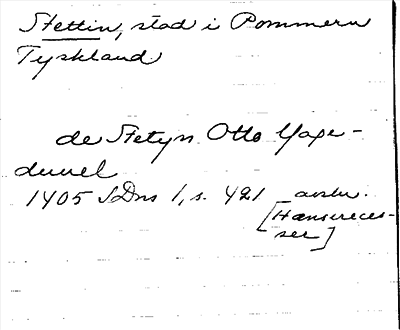 Stettin, stad i Pommern
Tyskland
de Stetyn Otto Yage-
duvel
1405 SDns 1, s. 421 avskr.
[Hansereces-
ser]